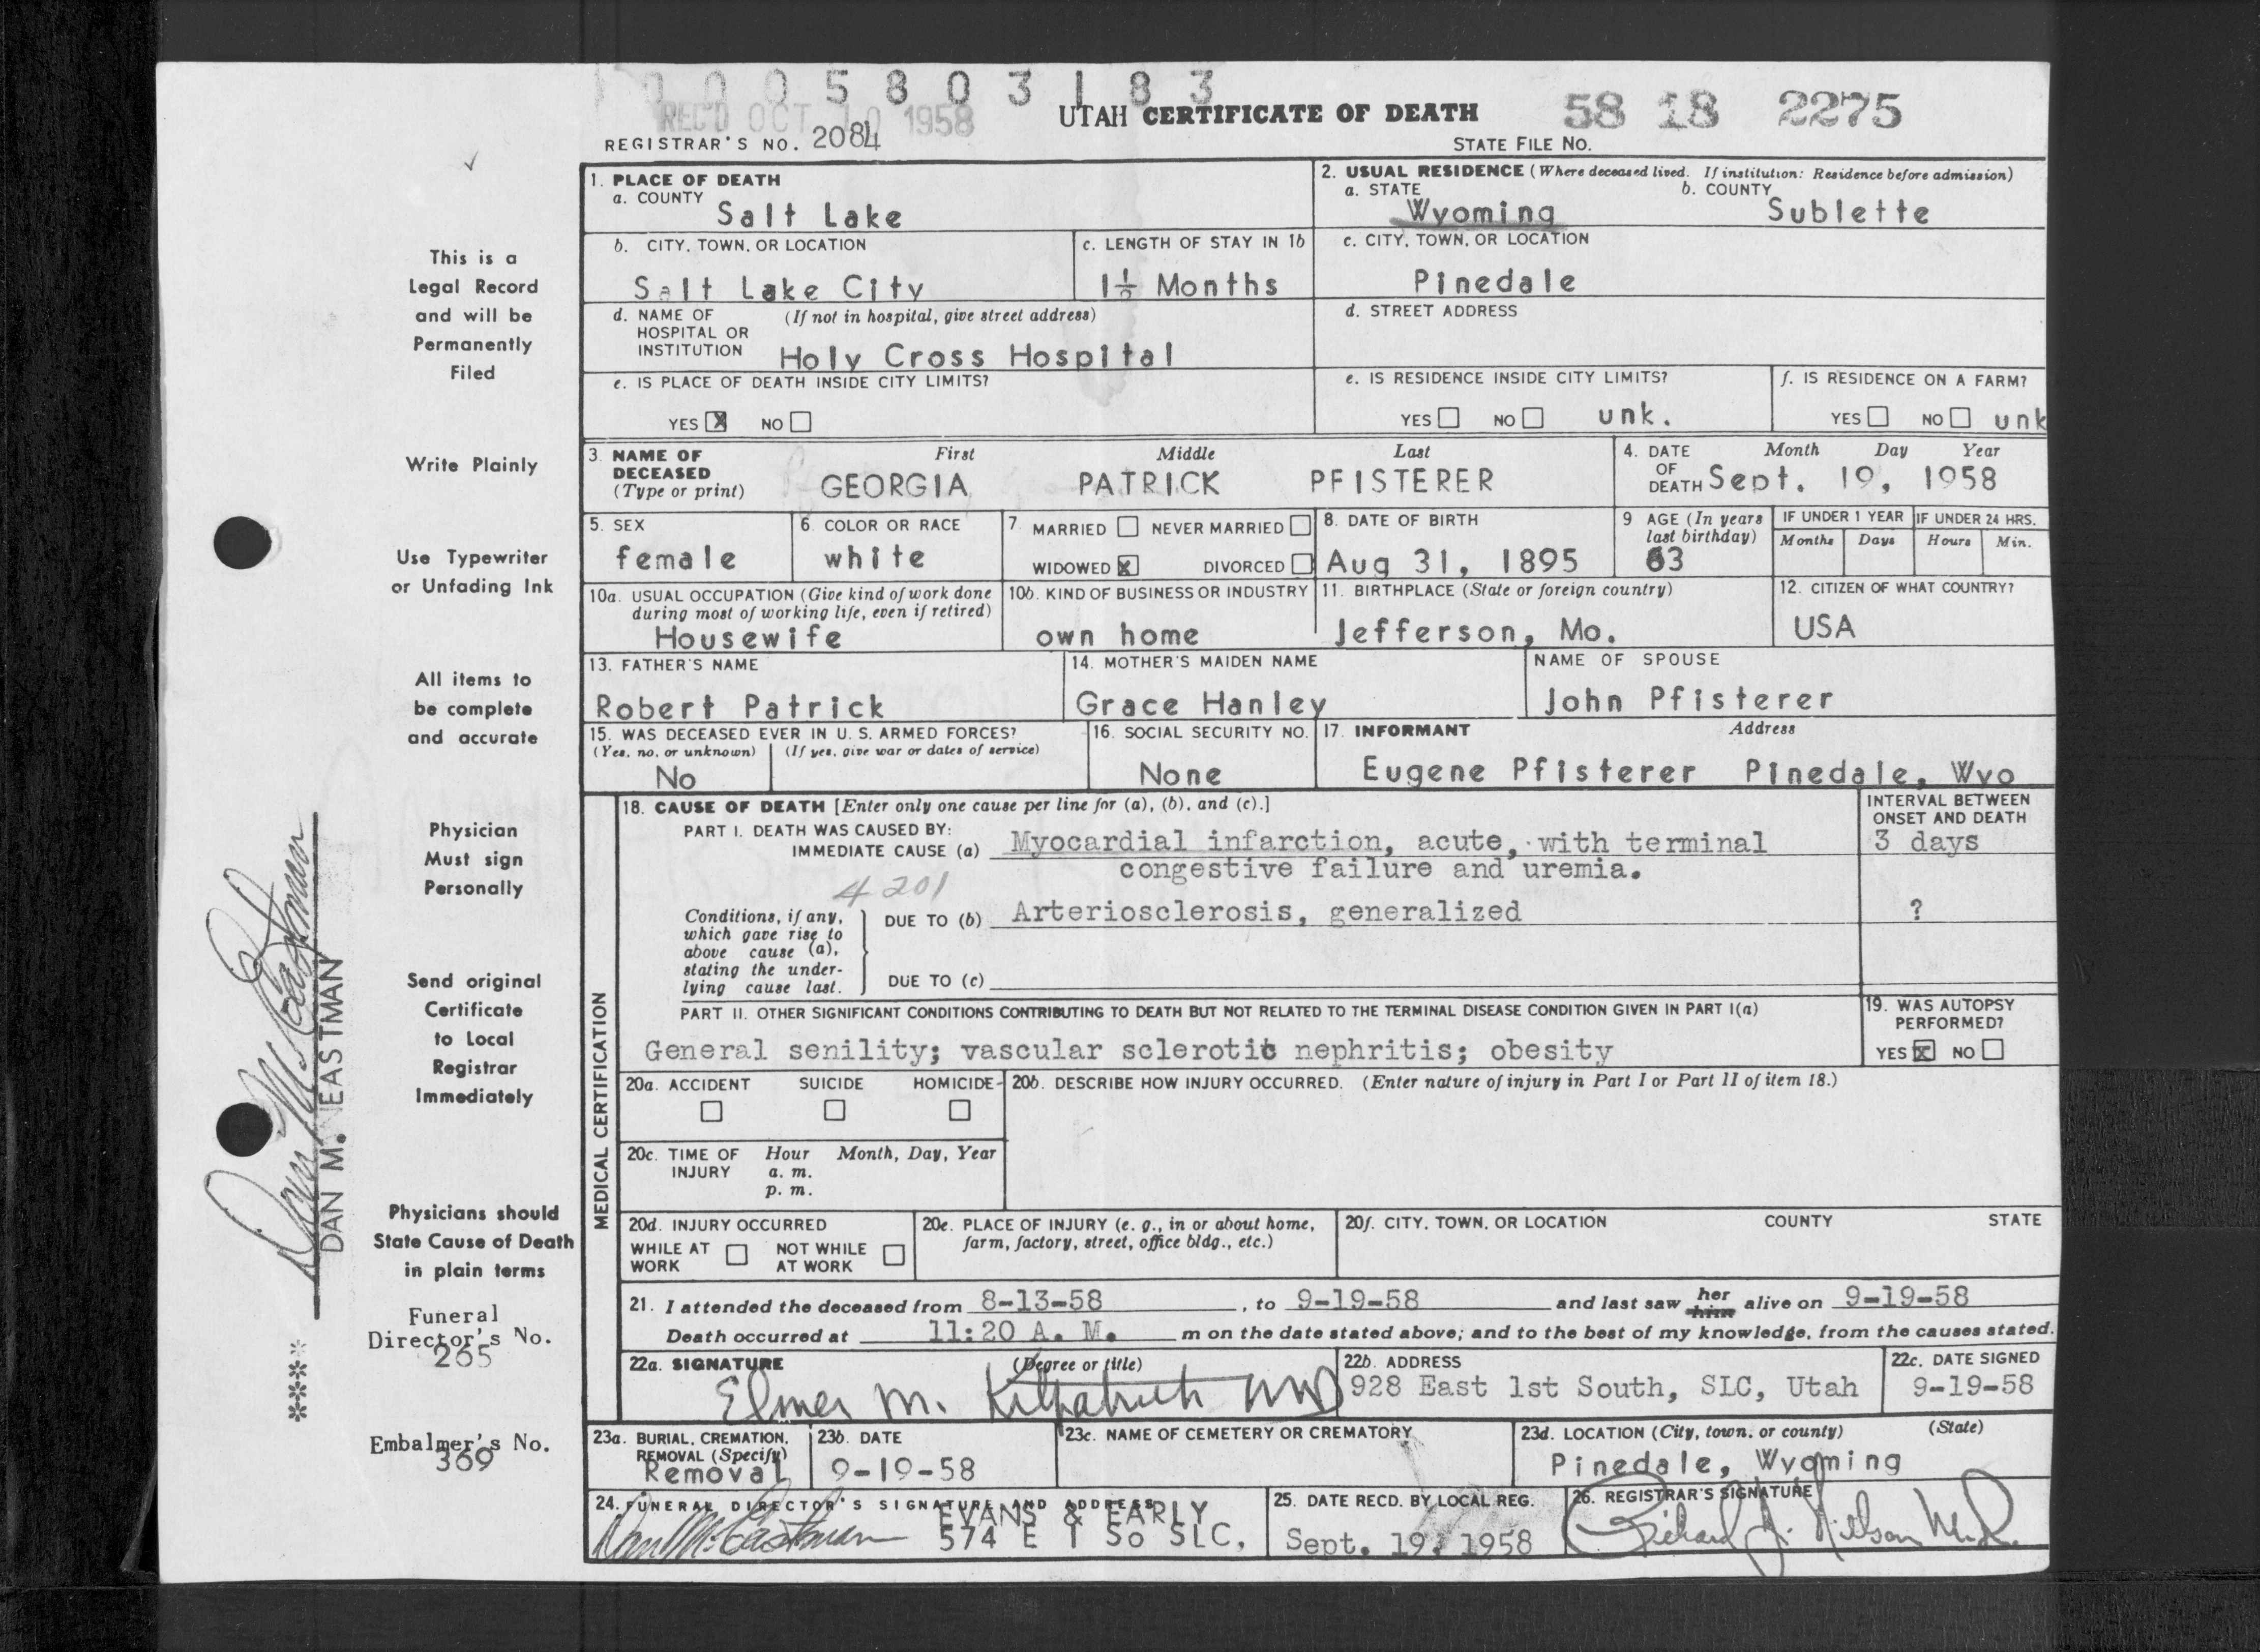 0005803183
REC'D OCT 10 1958
UTAH CERTIFICATE OF DEATH
58 18 2275
REGISTRAR'S NO. 2084
STATE FILE NO.
1. PLACE OF DEATH
a. COUNTY
Salt Lake
2. USUAL RESIDENCE (Where deceased lived. If institution: Residence before admission)
a. STATE
Wyoming
b. COUNTY
Sublette
b. CITY, TOWN, OR LOCATION
Salt Lake City
c. LENGTH OF STAY IN 1b
1½ Months
c. CITY, TOWN, OR LOCATION
Pinedale
d. NAME OF (If not in hospital, give street address)
HOSPITAL OR
INSTITUTION Holy Cross Hospital
d. STREET ADDRESS
e. IS PLACE OF DEATH INSIDE CITY LIMITS?
YES X NO
e. IS RESIDENCE INSIDE CITY LIMITS?
YES NO unk.
f. IS RESIDENCE ON A FARM?
YES NO unk
3. NAME OF
DECEASED
(Type or print)
First Middle Last
GEORGIA PATRICK PFISTERER
4. DATE
OF
DEATH
Month Day Year
Sept. 19, 1958
5. SEX
female
6. COLOR OR RACE
white
7. MARRIED NEVER MARRIED
WIDOWED X DIVORCED
8. DATE OF BIRTH
Aug 31, 1895
9 AGE (In years
last birthday)
63
IF UNDER 1 YEAR
Months Days
IF UNDER 24 HRS.
Hours Min.
10a. USUAL OCCUPATION (Give kind of work done
during most of working life, even if retired)
Housewife
10b. KIND OF BUSINESS OR INDUSTRY
own home
11. BIRTHPLACE (State or foreign country)
Jefferson, Mo.
12. CITIZEN OF WHAT COUNTRY?
USA
13. FATHER'S NAME
Robert Patrick
14. MOTHER'S MAIDEN NAME
Grace Hanley
NAME OF SPOUSE
John Pfisterer
15. WAS DECEASED EVER IN U. S. ARMED FORCES?
(Yes, no, or unknown) (If yes, give war or dates of service)
No
16. SOCIAL SECURITY NO.
None
17. INFORMANT Address
Eugene Pfisterer Pinedale, Wyo
MEDICAL CERTIFICATION
18. CAUSE OF DEATH [Enter only one cause per line for (a), (b), and (c).]
INTERVAL BETWEEN
ONSET AND DEATH
PART I. DEATH WAS CAUSED BY:
IMMEDIATE CAUSE (a) Myocardial infarction, acute, with terminal
3 days
congestive failure and uremia.
4 201
Conditions, if any,
which gave rise to
above cause (a),
stating the under-
lying cause last.
DUE TO (b) Arteriosclerosis, generalized
?
DUE TO (c)
PART II. OTHER SIGNIFICANT CONDITIONS CONTRIBUTING TO DEATH BUT NOT RELATED TO THE TERMINAL DISEASE CONDITION GIVEN IN PART I(a)
General senility; vascular sclerotic nephritis; obesity
19. WAS AUTOPSY
PERFORMED?
YES X NO
20a. ACCIDENT SUICIDE HOMICIDE
20b. DESCRIBE HOW INJURY OCCURRED. (Enter nature of injury in Part I or Part II of item 18.)
20c. TIME OF Hour Month, Day, Year
INJURY a. m.
p. m.
20d. INJURY OCCURRED
WHILE AT NOT WHILE
WORK AT WORK
20e. PLACE OF INJURY (e. g., in or about home,
farm, factory, street, office bldg., etc.)
20f. CITY, TOWN, OR LOCATION COUNTY STATE
21. I attended the deceased from 8-13-58, to 9-19-58 and last saw her him alive on 9-19-58
Death occurred at 11:20 A. M. m on the date stated above; and to the best of my knowledge, from the causes stated.
22a. SIGNATURE (Degree or title)
Elmer M. Kilpatrick MD
22b. ADDRESS
928 East 1st South, SLC, Utah
22c. DATE SIGNED
9-19-58
23a. BURIAL, CREMATION,
REMOVAL (Specify)
Removal
23b. DATE
9-19-58
23c. NAME OF CEMETERY OR CREMATORY
23d. LOCATION (City, town, or county) (State)
Pinedale, Wyoming
24. FUNERAL DIRECTOR'S SIGNATURE AND ADDRESS
Dan M. Eastman
EVANS & EARLY
574 E 1 So SLC,
25. DATE RECD. BY LOCAL REG.
Sept. 19, 1958
26. REGISTRAR'S SIGNATURE
Richard J. Nielson M.D.
This is a
Legal Record
and will be
Permanently
Filed
Write Plainly
Use Typewriter
or Unfading Ink
All items to
be complete
and accurate
Physician
Must sign
Personally
Send original
Certificate
to Local
Registrar
Immediately
Physicians should
State Cause of Death
in plain terms
Funeral
Director's No.
265
Embalmer's No.
369
Dan M. Eastman
DAN M. EASTMAN
****